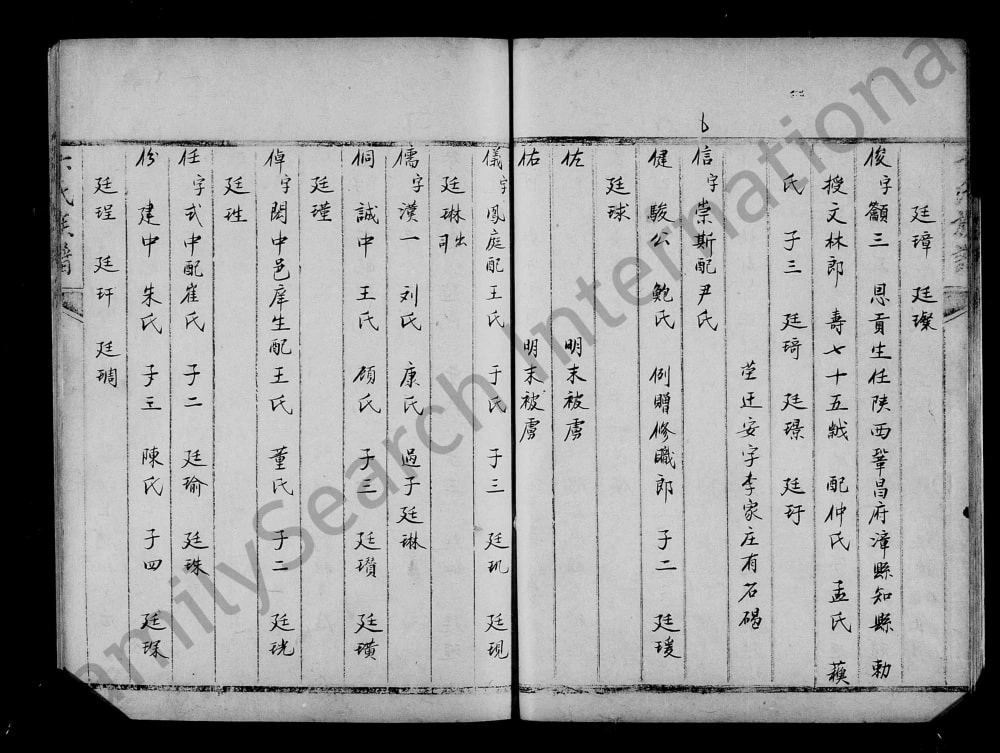 廷璋 廷璨
俊字籲三 恩貢生任陝西鞏昌府漳縣知縣 勅
授文林郎 壽七十五歲 配仲氏 孟氏 蘓
氏 子三 廷琦 廷璟 廷玗
塋迁安字李家庄有石碣
信字崇斯配尹氏
健 駿公 鮑氏 例贈修職郎 子二 廷瑗
廷球
佐 明末被虜
佑 明末被虜
儀字鳳庭配王氏 于氏 子三 廷玑 廷現
廷琳 出
儒字漢一 刘氏 康氏 過子廷琳
侗 誠中 王氏 顔氏 子三 廷瓚 廷璜
廷瑾
倬字閎中邑庠生配王氏 董氏 子二 廷珖
廷甡
任字式中配崔氏 子二 廷瑜 廷珠
份 建中 朱氏 子五 陳氏 子四 廷琛
廷珵 廷玕 廷琱
氏族譜
FamilySearch International